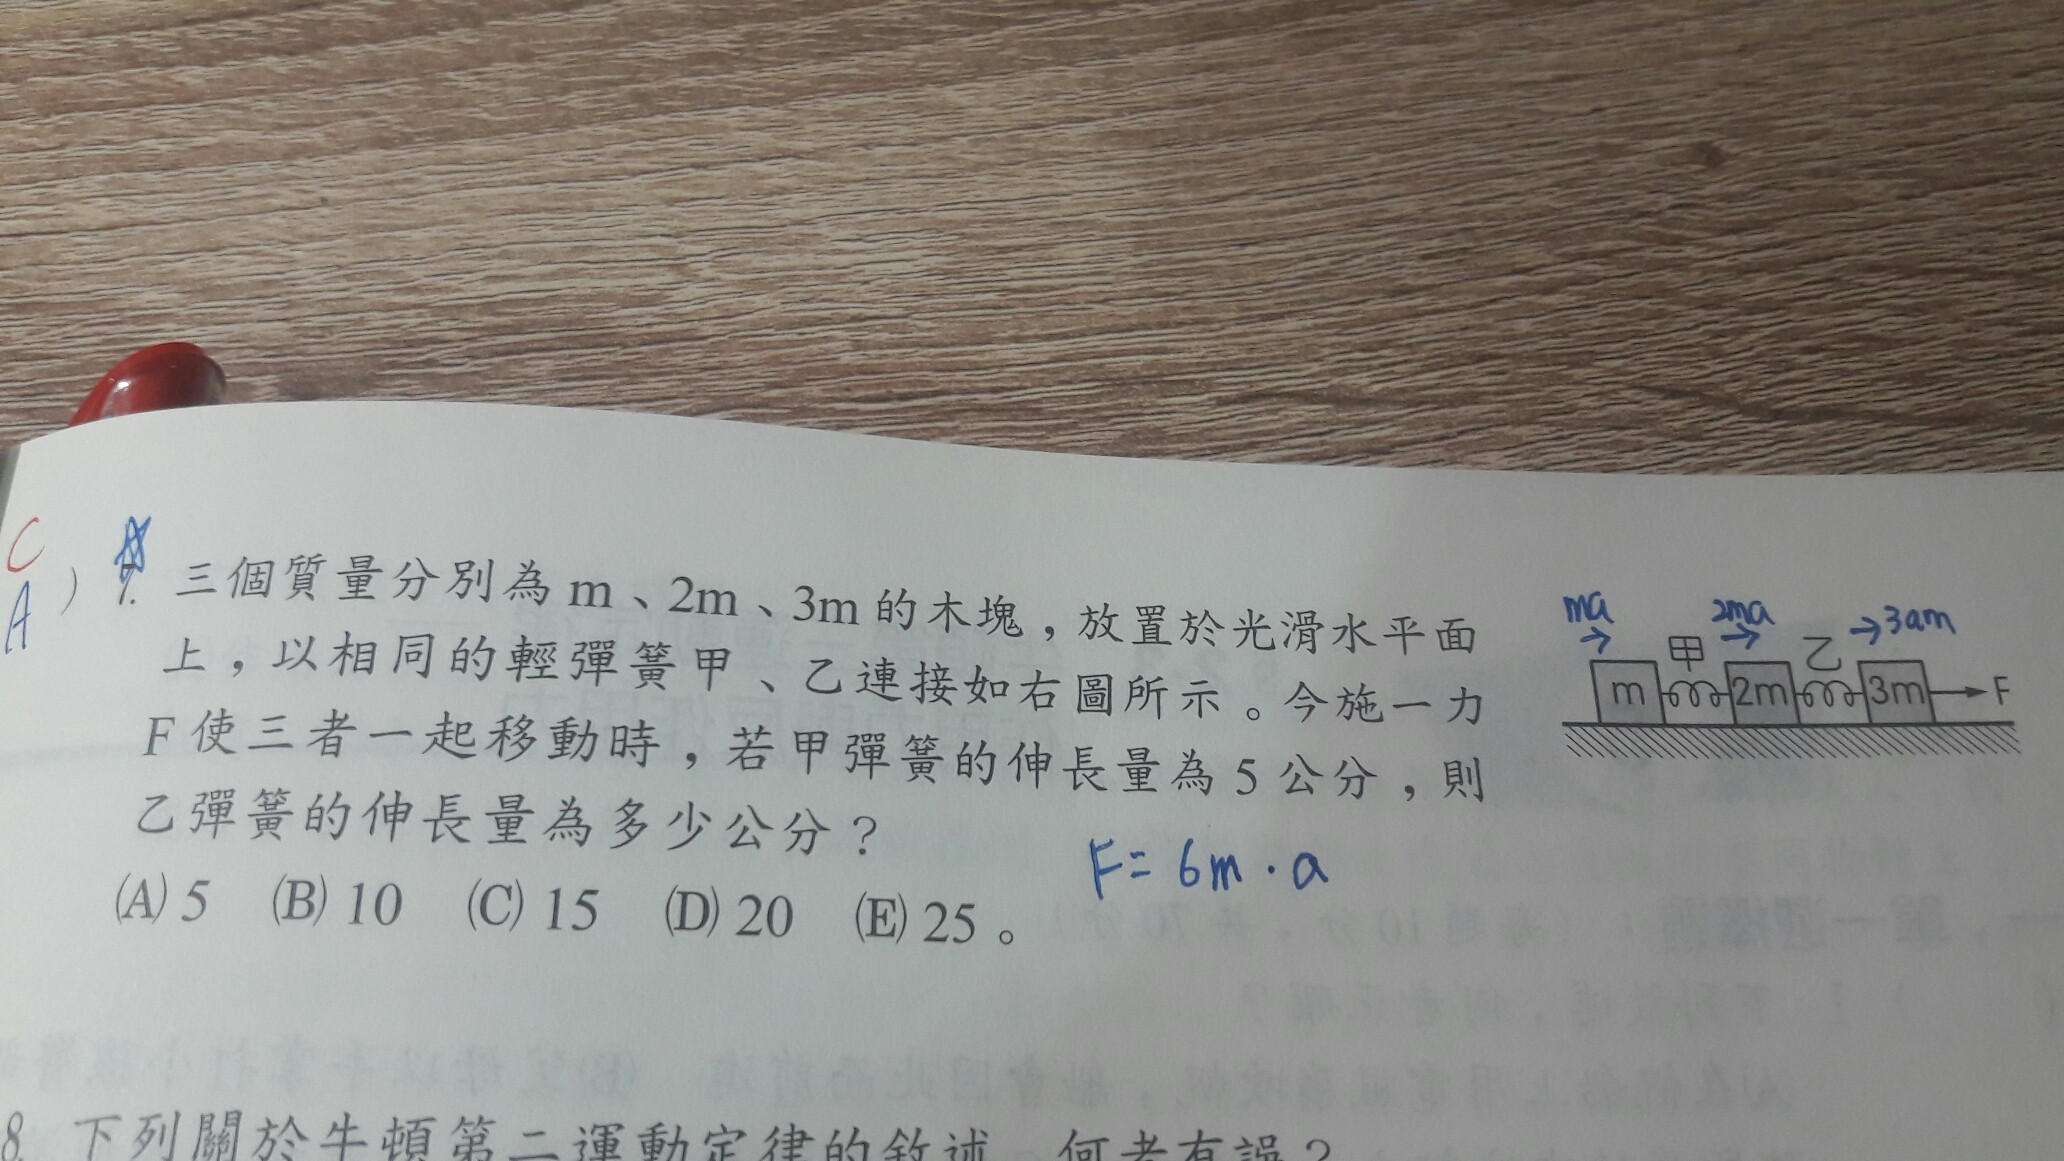 C
A ) 7. 三個質量分別為 m、2m、3m 的木塊，放置於光滑水平面
上，以相同的輕彈簧甲、乙連接如右圖所示。今施一力
F 使三者一起移動時，若甲彈簧的伸長量為 5 公分，則
乙彈簧的伸長量為多少公分？
(A) 5 (B) 10 (C) 15 (D) 20 (E) 25。
F = 6m · a
ma 2ma 3am
甲 乙
m 2m 3m F
8. 下列關於牛頓第二運動定律的敘述，何者有誤？